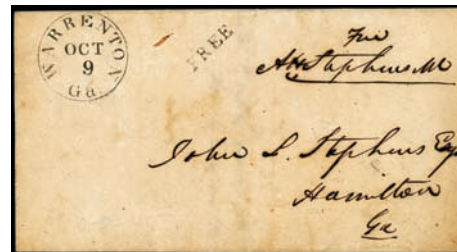 WARRENTON
OCT
9
Ga.
FREE
Free
AH Stephens M
John L. Stephens Esq
Hamilton
Ga